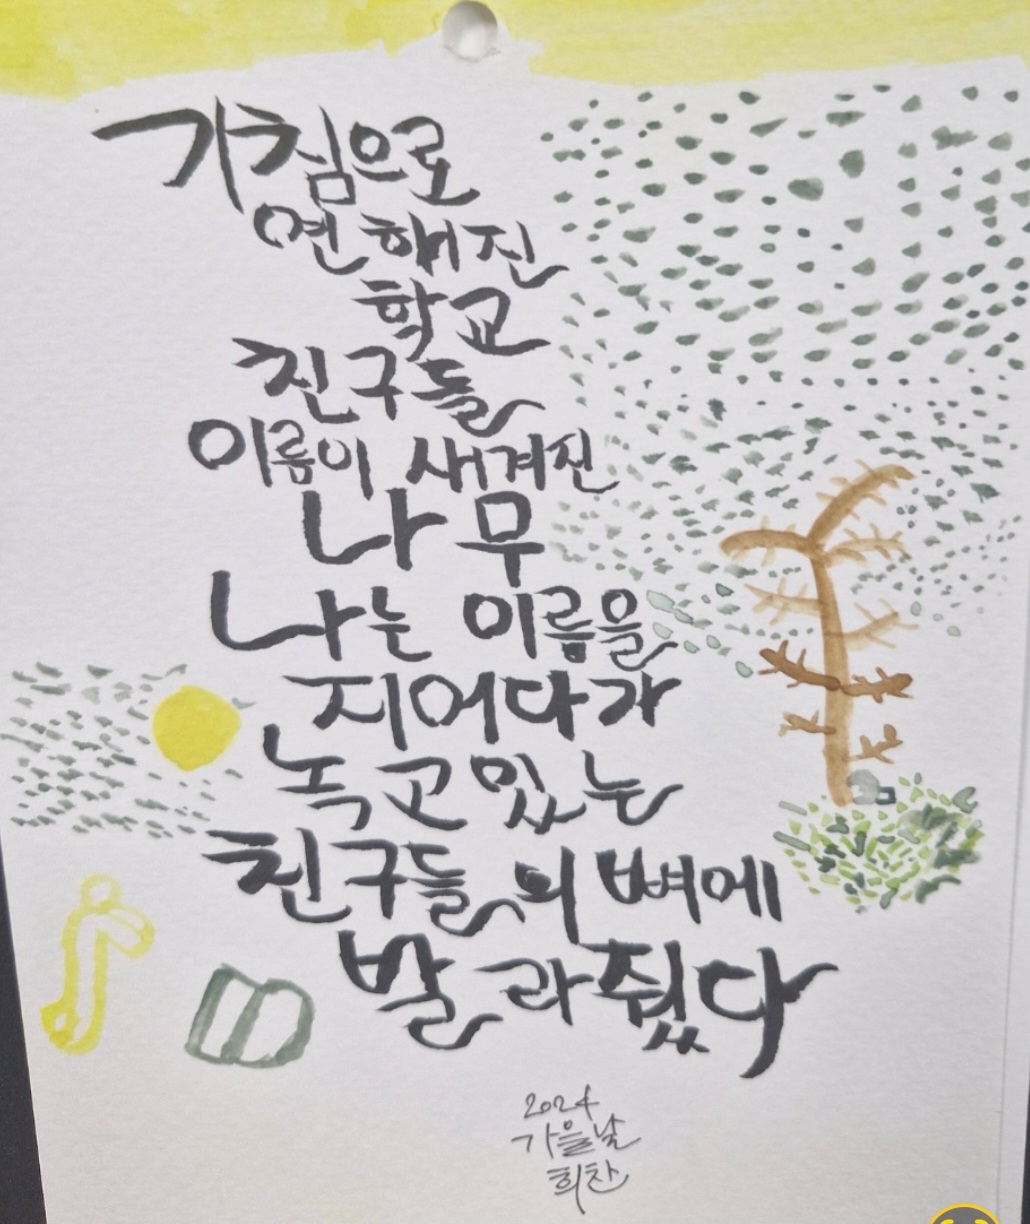 가침으로
연해진
학교
친구들
이름이 새겨진
나무
나는 이름을
지어다가
녹고있는
친구들의 뼈에
발라줬다
2024
가을날
희찬